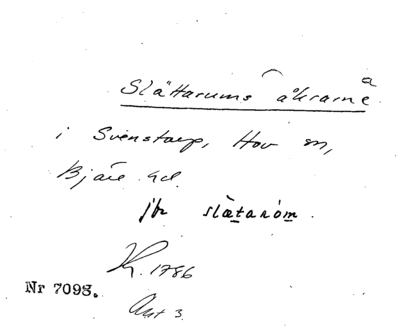 Slättarums åkrarne a
i Svenstorp, Hov sn,
Bjäre hd.
jfr slætaròm.
K. 1786
Nr 7093.
Ant 3.